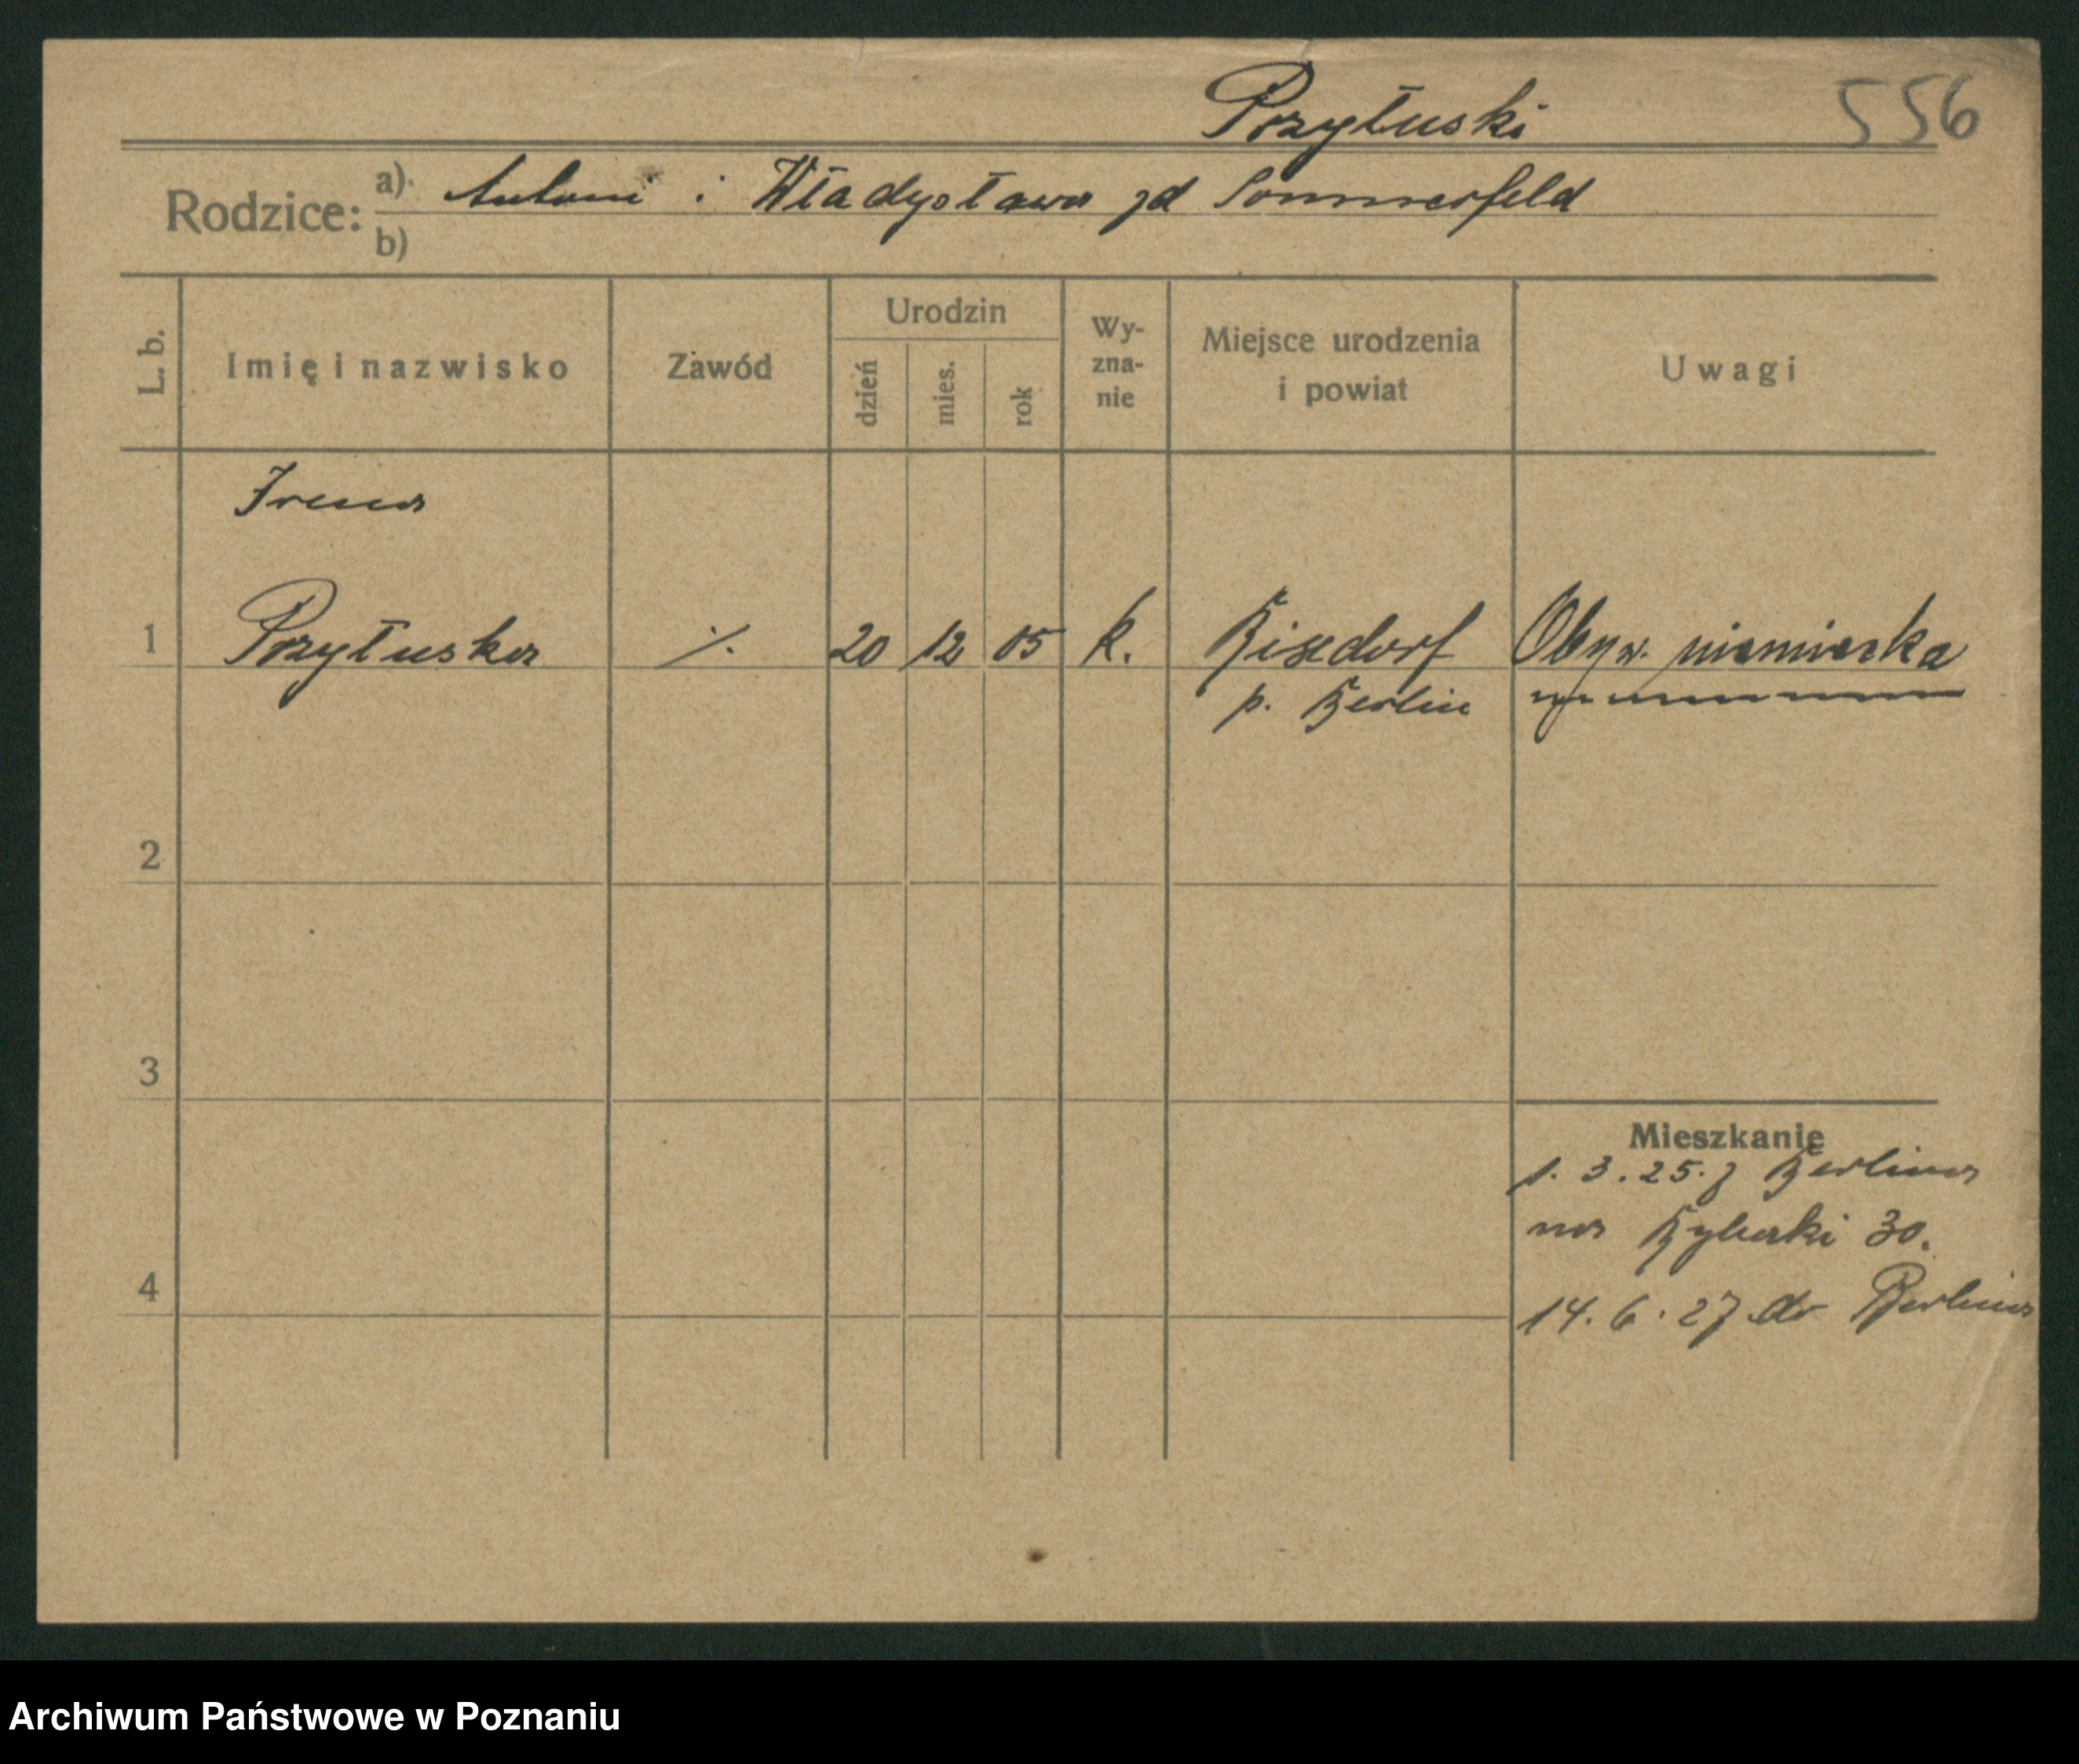 Przyłuski 556
Rodzice: a) Antoni i Władysława zd Sommerfeld
b)
L. b. Imię i nazwisko Zawód Urodzin dzień mies. rok Wy-zna-nie Miejsce urodzenia i powiat Uwagi
Irena
1 Przyłuska ./. 20 12 05 k. Bisdorf Obyw. niemiecka
p. Berlin
2
3
Mieszkanie
1. 3. 25. z Berlina
na Rybaki 30.
4
14. 6. 27 do Berlina
Archiwum Państwowe w Poznaniu